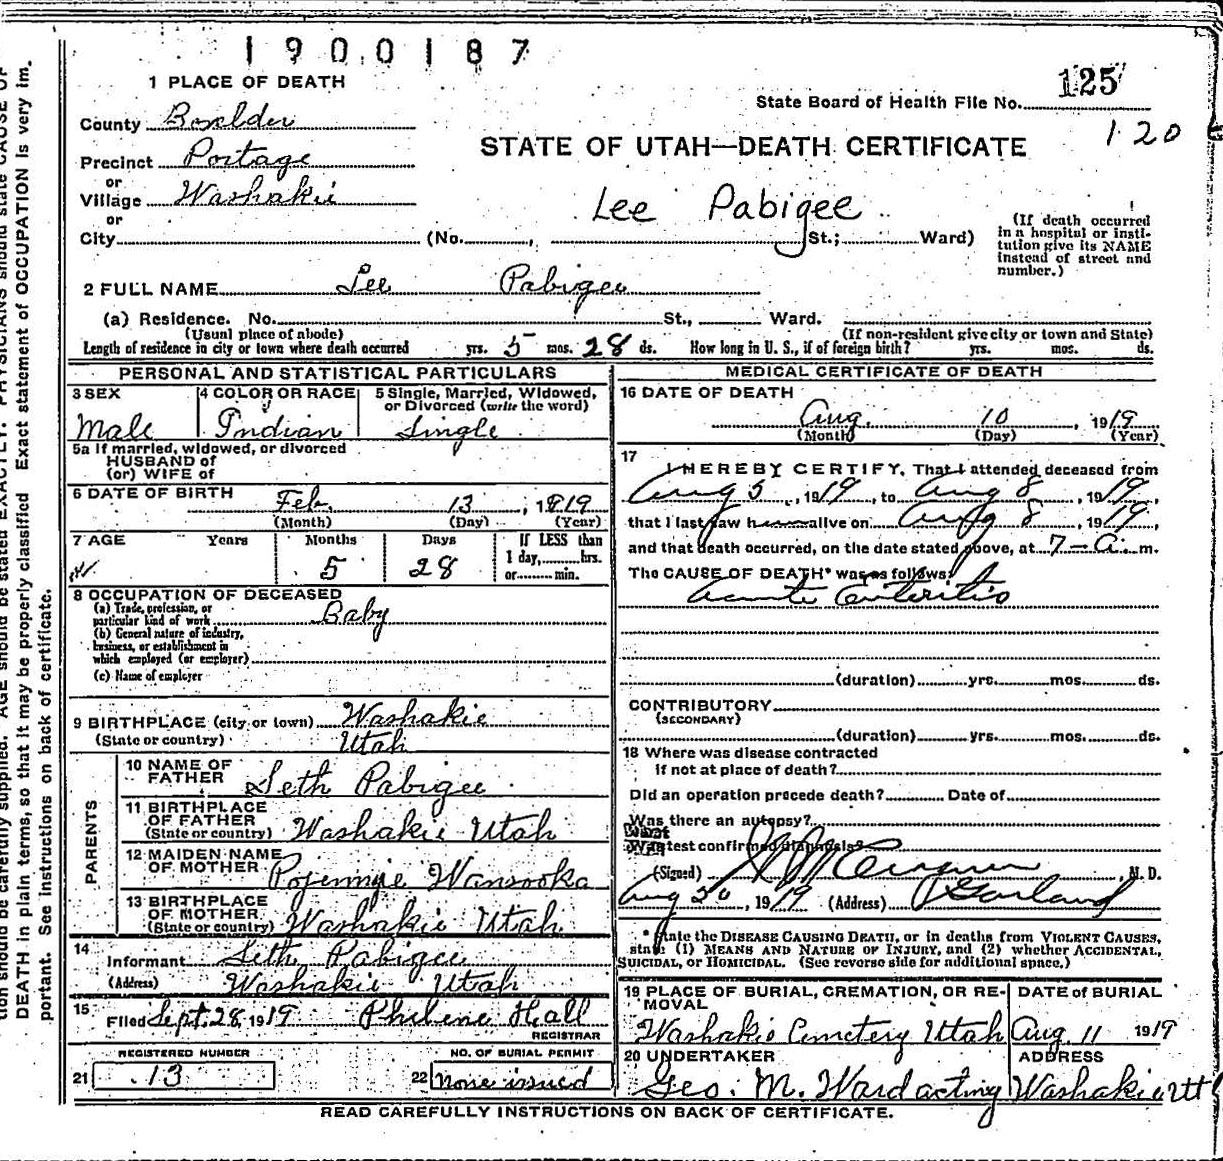 1900187
1 PLACE OF DEATH
125
State Board of Health File No.
120
County Boxelder
STATE OF UTAH—DEATH CERTIFICATE
Precinct Portage
or
Village Washakie
Lee Pabigee
or
City (No. , St.; Ward)
(If death occurred
in a hospital or insti-
tution give its NAME
instead of street and
number.)
2 FULL NAME Lee Pabigee
(a) Residence. No. St., Ward.
(Usual place of abode) (If non-resident give city or town and State)
Length of residence in city or town where death occurred yrs. 5 mos. 28 ds. How long in U. S., if of foreign birth? yrs. mos. ds.
PERSONAL AND STATISTICAL PARTICULARS
3 SEX
Male
4 COLOR OR RACE
Indian
5 Single, Married, Widowed,
or Divorced (write the word)
Single
5a If married, widowed, or divorced
HUSBAND of
(or) WIFE of
6 DATE OF BIRTH
Feb. 13, 1919
(Month) (Day) (Year)
7 AGE Years Months Days
5 28
If LESS than
1 day, hrs.
or min.
8 OCCUPATION OF DECEASED
(a) Trade, profession, or
particular kind of work Baby
(b) General nature of industry,
business, or establishment in
which employed (or employer)
(c) Name of employer
9 BIRTHPLACE (city or town) Washakie
(State or country) Utah
PARENTS
10 NAME OF
FATHER Seth Pabigee
11 BIRTHPLACE
OF FATHER
(State or country) Washakie Utah
12 MAIDEN NAME
OF MOTHER Wansooka
13 BIRTHPLACE
OF MOTHER
(State or country) Washakie Utah
14
Informant Seth Pabigee
(Address) Washakie Utah
15
Filed Sept. 28, 1919 Philene Hall
REGISTRAR
REGISTERED NUMBER
21 13
NO. OF BURIAL PERMIT
22 none issued
MEDICAL CERTIFICATE OF DEATH
16 DATE OF DEATH
Aug. 10, 1919
(Month) (Day) (Year)
17
I HEREBY CERTIFY, That I attended deceased from
Aug 5, 1919, to Aug 8, 1919,
that I last saw h alive on Aug 8, 1919,
and that death occurred, on the date stated above, at 7 - a. m.
The CAUSE OF DEATH* was as follows:
Acute Enteritis
(duration) yrs. mos. ds.
CONTRIBUTORY
(SECONDARY)
(duration) yrs. mos. ds.
18 Where was disease contracted
if not at place of death?
Did an operation precede death? Date of
Was there an autopsy?
What test confirmed diagnosis?
(Signed) , M. D.
Aug 20, 1919 (Address) Garland
* State the DISEASE CAUSING DEATH, or in deaths from VIOLENT CAUSES,
state (1) MEANS AND NATURE OF INJURY, and (2) whether ACCIDENTAL,
SUICIDAL, or HOMICIDAL. (See reverse side for additional space.)
19 PLACE OF BURIAL, CREMATION, OR RE-
MOVAL
Washakie Cemetery Utah
DATE of BURIAL
Aug. 11 1919
20 UNDERTAKER
Geo. M. Ward acting
ADDRESS
Washakie Ut
READ CAREFULLY INSTRUCTIONS ON BACK OF CERTIFICATE.
tion should be carefully supplied. AGE should be stated EXACTLY. PHYSICIANS should state CAUSE OF
DEATH in plain terms, so that it may be properly classified Exact statement of OCCUPATION is very im-
portant. See instructions on back of certificate.